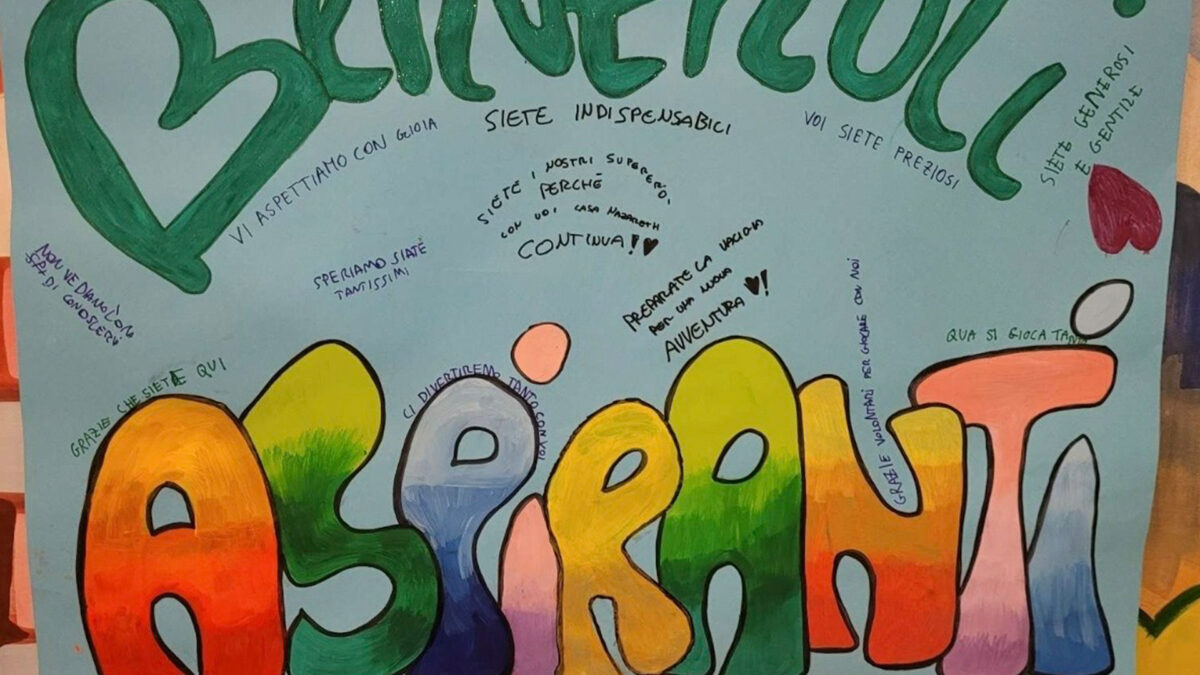 BENVENUTI
SIETE INDISPENSABILI
VI ASPETTIAMO CON GIOIA
VOI SIETE PREZIOSI
SIETE GENEROSI
E GENTILE
SIETE I NOSTRI SUPEREROI,
PERCHÉ
CON VOI CASA NAZARETH
CONTINUA!
NON VEDIAMO L'ORA
DI CONOSCERVI
SPERIAMO SIATE
TANTISSIMI
PREPARATE LA VALIGIA
PER UNA NUOVA
AVVENTURA !
GRAZIE CHE SIETE QUI
CI DIVERTIREMO TANTO CON VOI
GRAZIE VOLONTARI PER GIOCARE CON NOI
QUA SI GIOCA TANTO
ASPIRANTI